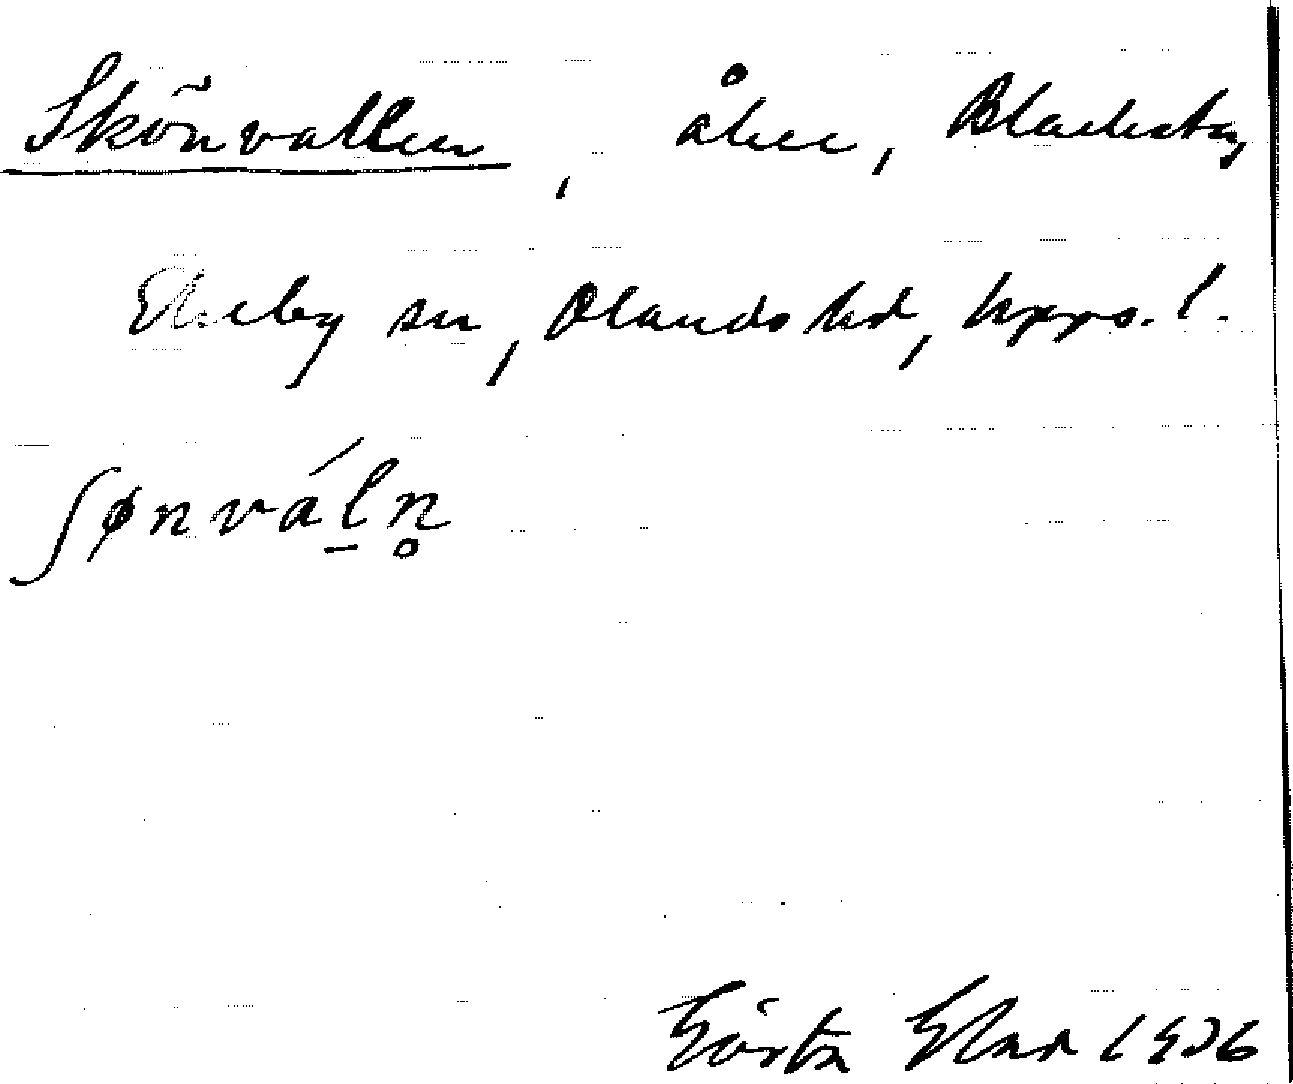 Skönvallen, åker, Blacksta,
Ekeby sn, Olands hd, Upps. l.
ʃønváḻn̥
Gösta 1936